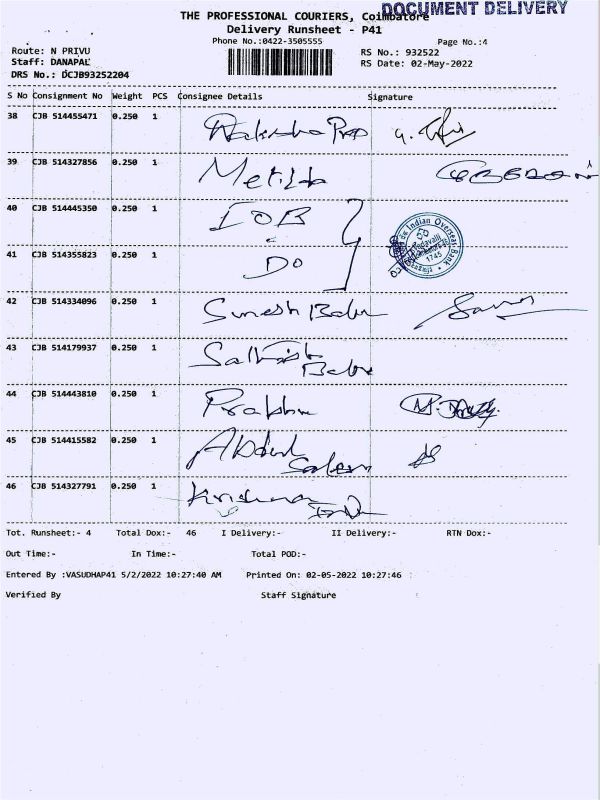 DOCUMENT DELIVERY
THE PROFESSIONAL COURIERS, Coimbatore
Delivery Runsheet - P41
Phone No.:0422-3505555
Page No.:4
Route: N PRIVU
RS No.: 932522
Staff: DANAPAL
RS Date: 02-May-2022
DRS No.: DCJB93252204
S No Consignment No Weight PCS Consignee Details Signature
38 CJB 514455471 0.250 1
39 CJB 514327856 0.250 1 Metilda
40 CJB 514445350 0.250 1 IOB
41 CJB 514355823 0.250 1 Do
Indian Overseas Bank
1745
42 CJB 514334096 0.250 1 Suresh Babu
43 CJB 514179937 0.250 1 Sathish Babu
44 CJB 514443810 0.250 1 Prabhu
45 CJB 514415582 0.250 1 Abdul Salem
46 CJB 514327791 0.250 1 Krishna
Tot. Runsheet:- 4 Total Dox:- 46 I Delivery:- II Delivery:- RTN Dox:-
Out Time:- In Time:- Total POD:-
Entered By :VASUDHAP41 5/2/2022 10:27:40 AM Printed On: 02-05-2022 10:27:46
Verified By Staff Signature